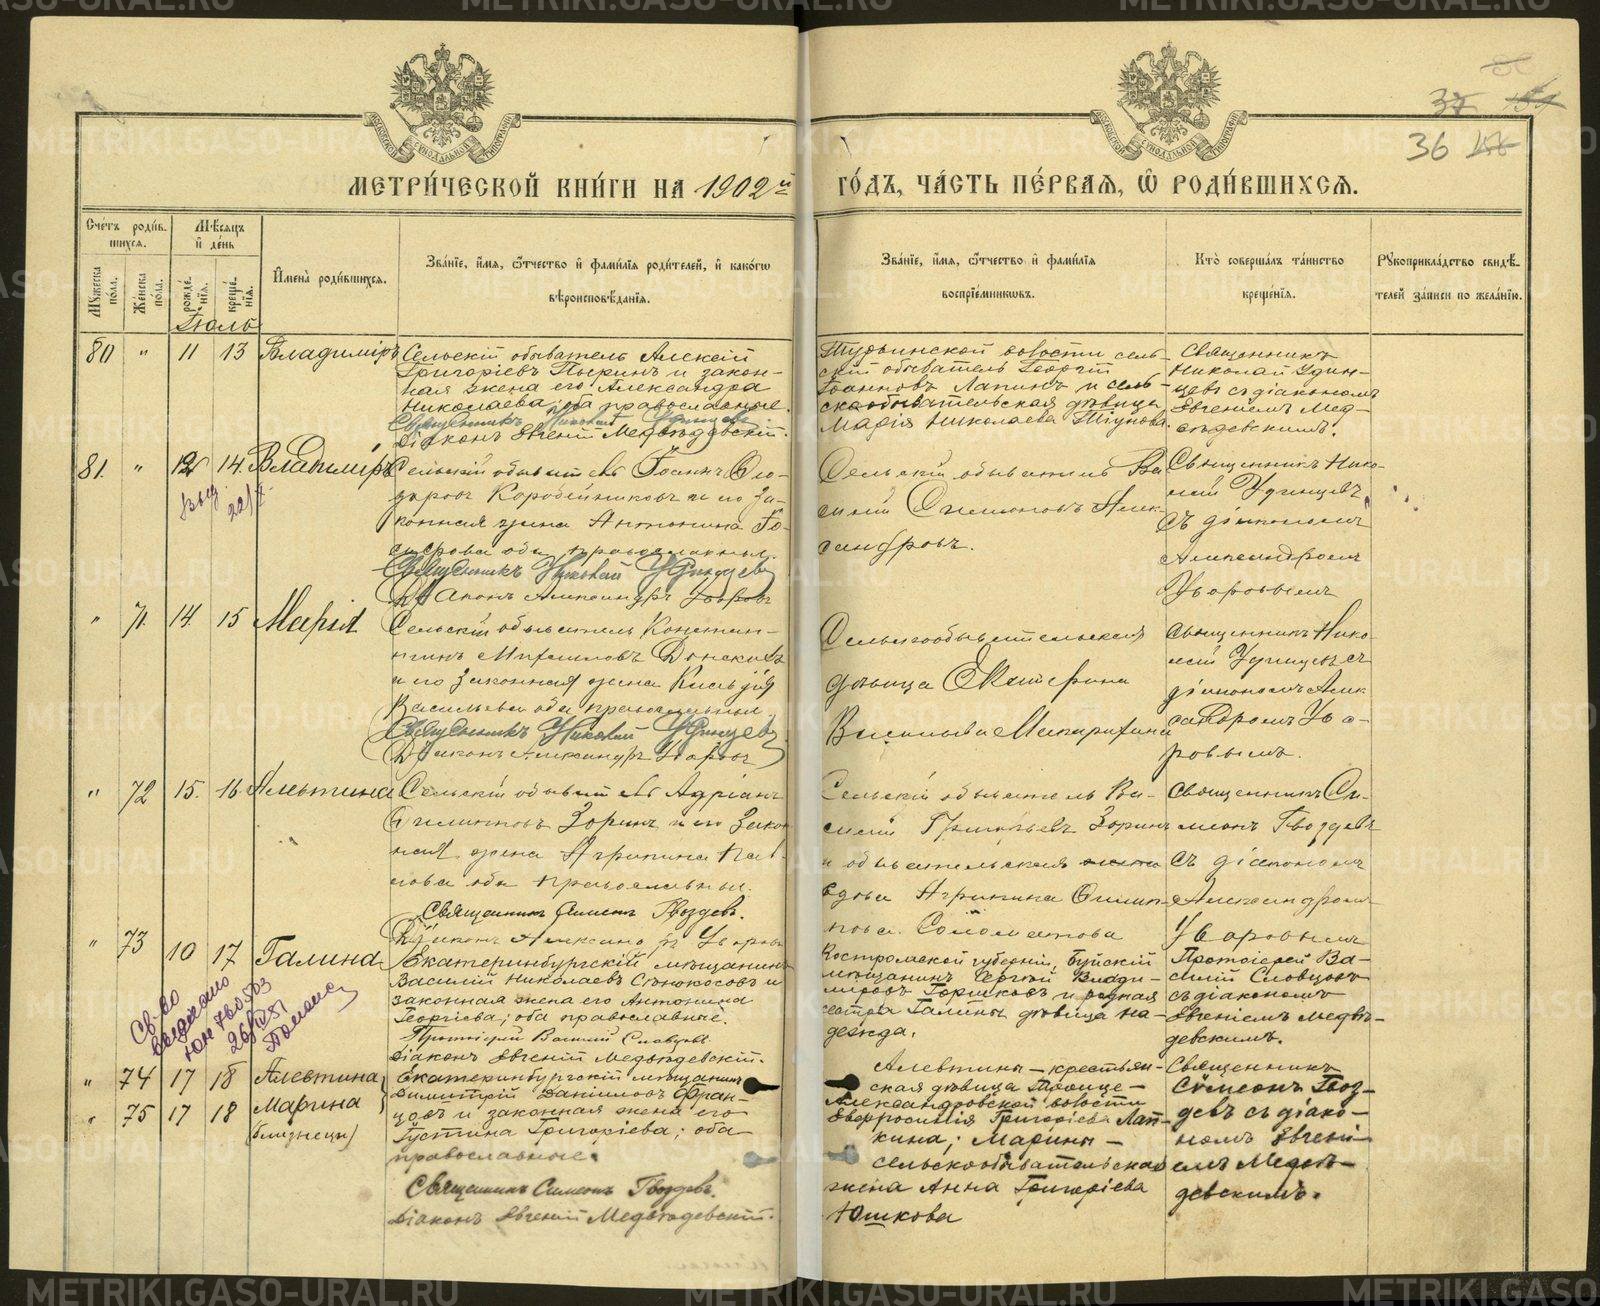 37
36
МЕТРИ́ЧЕСКОЙ КНИ́ГИ НА 1902й
ГО́ДЪ, ЧА́СТЬ ПЕ́РВАѦ, Ѡ РОДИ́ВШИХСѦ.
Сче́тъ роди́в-
шихся.
Мꙋ́жеска по́ла.
Же́нска по́ла.
Мѣ́сяцъ
и҆ де́нь
рожде́-
нія.
креще́-
нія.
И҆мена̀ роди́вшихся.
Зва́ніе, и҆́мя, ѻ҆́тчество и҆ фами́лія роди́телей, и҆ како́гѡ
вѣроисповѣ́данія.
Зва́ніе, и҆́мя, ѻ҆́тчество и҆ фами́лія
воспріе́мниковъ.
Кто̀ соверша́лъ та́инство
креще́нія.
Рꙋкоприкла́дство свидѣ́-
телей за́писи по жела́нію.
Іюль
80 " 11 13 Владиміръ
Сельскій обыватель Алексій
Григоріевъ Пыринъ и закон-
ная жена его Александра
Николаева; оба православные.
Священникъ Николай Удинцевъ
Діаконъ Евгеній Медвѣдевскій.
Турьинской волости сель-
скій обыватель Георгій
Іоанновъ Лапинъ и сель-
скообывательская дѣвица
Марія Николаева Тіунова.
Священникъ
Николай Удин-
цевъ съ діакономъ
Евгеніемъ Мед-
вѣдевскимъ.
81. " 12 14. Владиміръ
Выд.
Сельскій обыватель Іоаннъ Ѳео-
доровъ Коробейниковъ и его за-
конная жена Антонина Го-
оба православные.
Священникъ Николай Удинцевъ
Діаконъ Александръ Уваровъ
Сельскій обыватель Ва-
силій Симоновъ Алек-
сандровъ.
Священникъ Нико-
лай Удинцевъ
съ діакономъ
Александромъ
Уваровымъ
" 71. 14. 15 Марія
Сельскій обыватель Констан-
тинъ Михаиловъ Донскихъ
и его законная жена Клавдія
Васильева оба православные.
Священникъ Николай Удинцевъ
Діаконъ Александръ Уваровъ
Сельскообывательская
дѣвица Екатерина
Васильева Макарихина
Священникъ Нико-
лай Удинцевъ съ
діакономъ Алек-
сандромъ Ува-
ровымъ.
" 72 15. 16. Алевтина
Сельскій обыватель Адріанъ
Филипповъ Зоринъ и его закон-
ная жена Агрипина Пав-
лова оба православные.
Священникъ Симеонъ Гвоздевъ.
Діаконъ Александръ Уваровъ
Сельскій обыватель Ва-
силій Григорьевъ Зоринъ
и обывательская
вдова Агрипина Филип-
пова Соломатова
Священникъ Си-
меонъ Гвоздевъ
съ діакономъ
Александромъ
Уваровымъ
" 73 10 17 Галина
Св-во
выдано
ЮН 760503
Екатеринбургскій мѣщанинъ
Василій Николаевъ Стококосовъ и
законная жена его Антонина
Георгіева; оба православные.
Протоіерей Василій Словцовъ
Діаконъ Евгеній Медвѣдевскій.
Костромской губерніи, Буйскій
мѣщанинъ Сергѣй Влади-
міровъ Горшковъ и родная
сестра Галины дѣвица На-
дежда.
Протоіерей Ва-
силій Словцовъ
съ діакономъ
Евгеніемъ Медвѣ-
девскимъ.
" 74 17 18 Алевтина
" 75 17 18 Марина
(близнецы)
Екатеринбургскій мѣщанинъ
Димитрій Даніиловъ Фран-
цовъ и законная жена его
Іустина Григоріева; оба
православные.
Священникъ Симеонъ Гвоздевъ.
Діаконъ Евгеній Медвѣдевскій.
Алевтины — крестьян-
ская дѣвица Троице-
Александровской волости
Евфросинія Григоріева Лап-
кина; Марины —
сельскообывательская
жена Анна Григоріева
Юшкова
Священникъ
Сѵмеонъ Гвоз-
девъ съ діако-
номъ Евгені-
емъ Медвѣ-
девскимъ.
METRIKI.GASO-URAL.RU